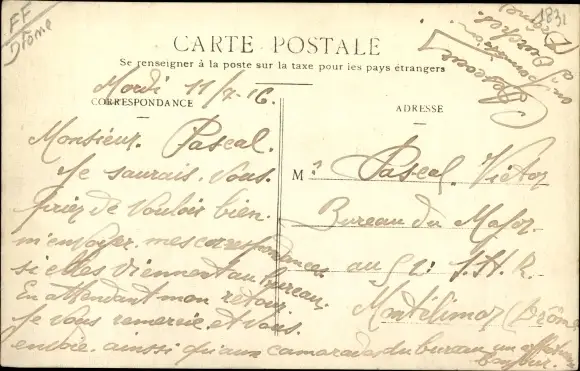 FF
Drôme
1831
CARTE POSTALE
Se renseigner à la poste sur la taxe pour les pays étrangers
Mardi 11/7-16
CORRESPONDANCE
ADRESSE
Monsieur. Pascal.
Je saurais. vous.
priez de vouloir bien.
m'envoyer. mes correspondances
si elles viennent au bureau.
En attendant mon retour.
Je vous remercie. et vous.
envoie. ainsi qu'aux camarades du bureau. un
bonjour.
M. Pascal. Victor
Bureau du Major.
au 52: I. H. R.
Montélimar (Drôme